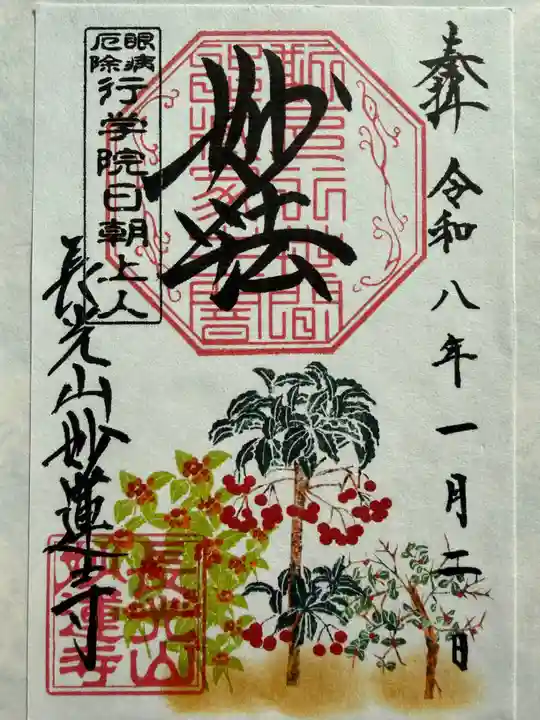 奉拝 令和八年一月二日
妙法
眼病
厄除
行学院日朝上人
長光山妙蓮寺
長光山
妙蓮寺